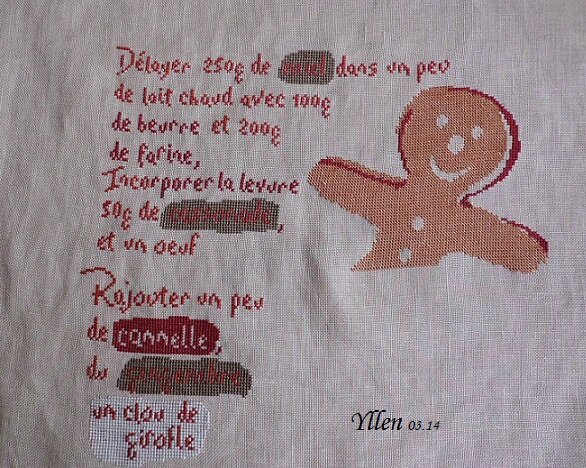 Délayer 250g de miel dans un peu
de lait chaud avec 100g
de beurre et 200g
de farine,
Incorporer la levure
50g de cassonade,
et un oeuf
Rajouter un peu
de cannelle,
du gingembre
un clou de
girofle
Yllen 03.14